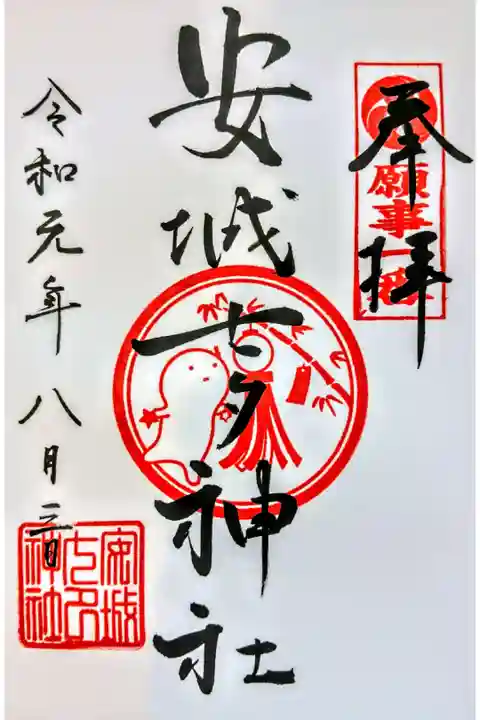 奉拝
願事一番
安城七夕神社
令和元年八月三日
安城
七夕
神社